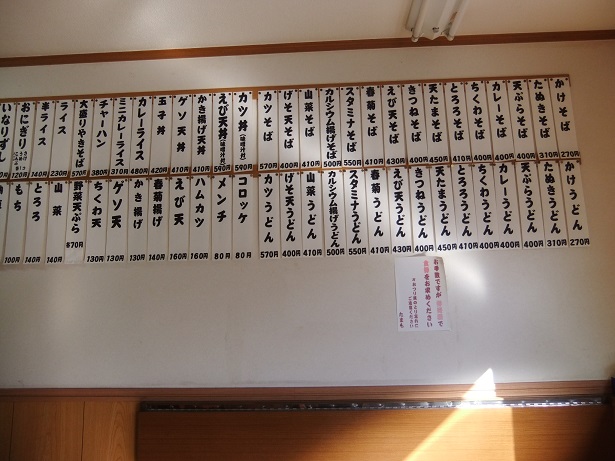 かけそば 270円
たぬきそば 310円
天ぷらそば 400円
カレーそば 400円
ちくわそば 400円
とろろそば 410円
天たまそば 450円
きつねそば 400円
えび天そば 430円
春菊そば 410円
スタミナそば 550円
カルシウム揚げそば 500円
山菜そば 410円
げそ天そば 400円
カツそば 570円
カツ丼(味噌汁付) 590円
えび天丼(味噌汁付) 590円
かき揚げ天丼 410円
ゲソ天丼 410円
玉子丼
カレーライス 480円
ミニカレーライス 380円
チャーハン 410円
大盛りやきそば 570円
ライス 230円
半ライス 140円
おにぎり 120円
いなりずし
かけうどん 270円
たぬきうどん 310円
天ぷらうどん 400円
カレーうどん 400円
ちくわうどん 400円
とろろうどん 410円
天たまうどん 450円
きつねうどん 400円
えび天うどん 430円
春菊うどん 410円
スタミナうどん 550円
カルシウム揚げうどん 500円
山菜うどん 410円
げそ天うどん 400円
カツうどん 500円
コロッケ 80円
メンチ 80円
ハムカツ 160円
えび天 160円
春菊揚げ 140円
かき揚げ 130円
ゲソ天 130円
ちくわ天 130円
野菜天ぷら ¥70円
山菜 140円
とろろ 140円
もち 100円
お手数ですが 券売機で
食券をお求めください
たまも